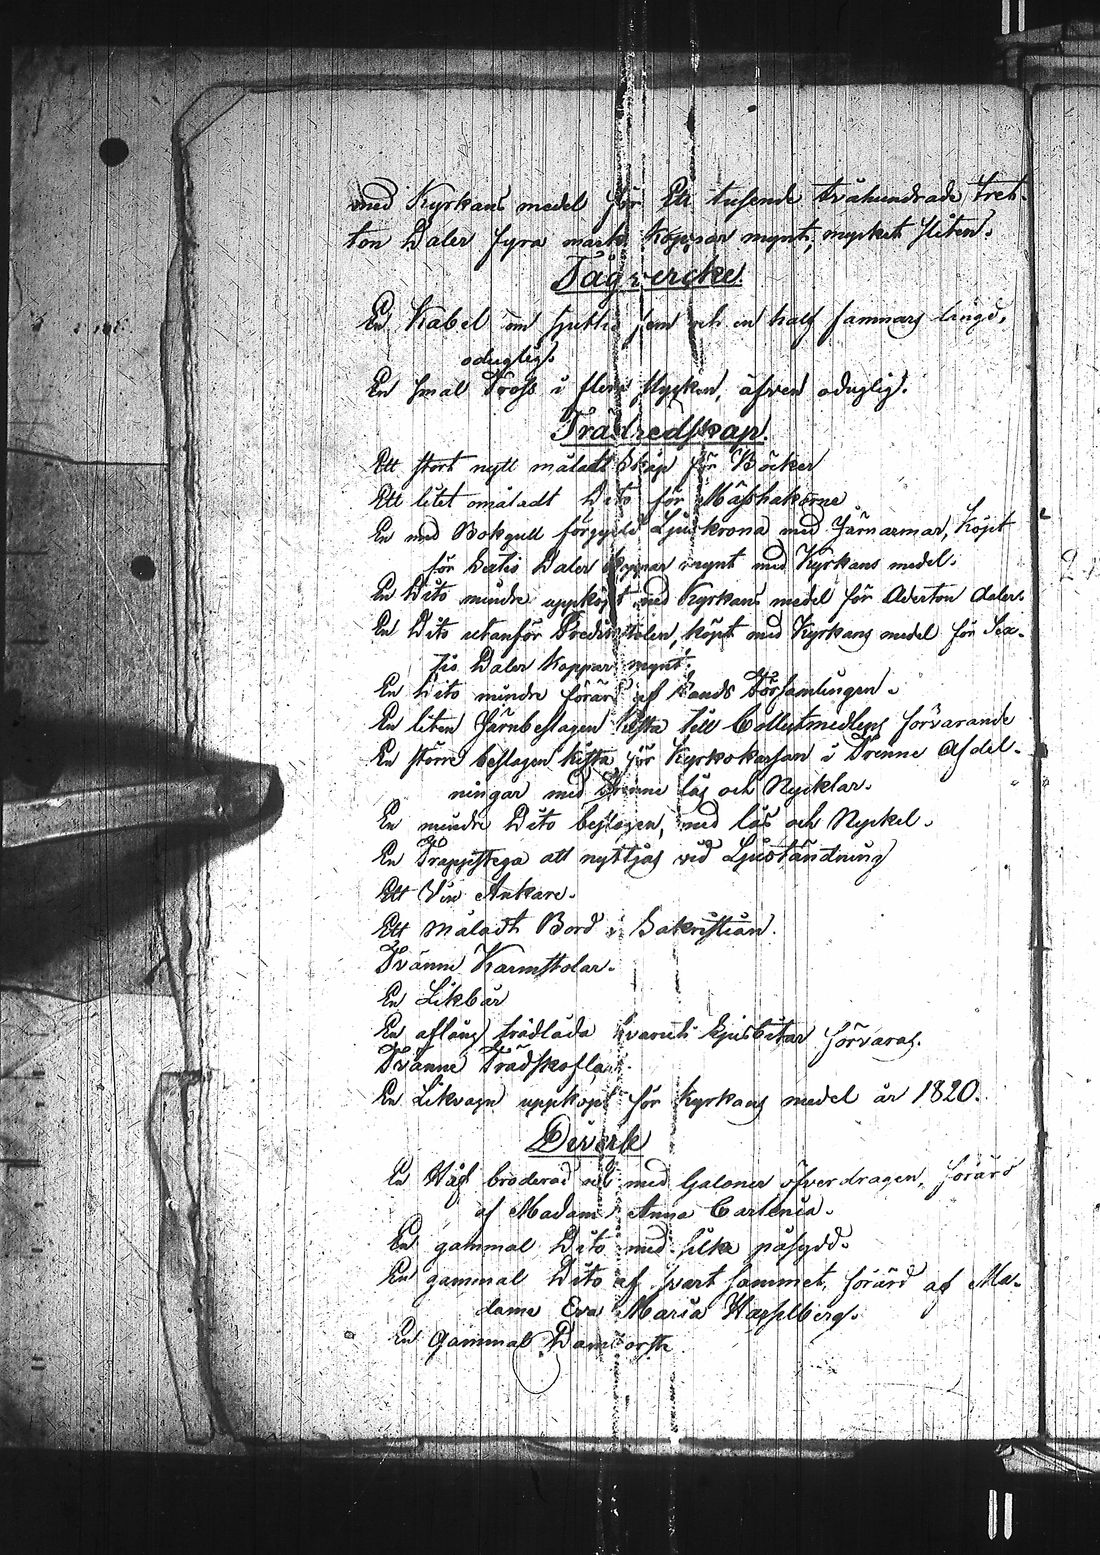 med Kyrkans medel för Ett tusende tvåhundrade tret-
ton Daler fyra mark Koppar mynt, mycket sliten.
Tågvercke.
En Kabel om sjuttio fem och en half famnars längd,
oduglig.
En smal Tross i flere stycken, äfven oduglig.
Trädredskap.
Ett stort nytt måladt Skåp för Böcker
Ett litet omåladt Dito för Mässhakorne
En med Bokgull förgyld Ljuskrona med Järnarmar, köpt
för Sextio Daler Koppar mynt med Kyrkans medel.
En Dito mindre uppköpt med Kyrkans medel för Aderton daler.
En Dito utanför Predikstolen, köpt med Kyrkans medel för Sex-
tio Daler Koppar mynt.
En Dito mindre förärd af Lands Församlingen.
En liten Järnbeslagen kista till Collectmedlens förvarande
En större beslagen kista för Kyrkokassan i Trenne Afdel-
ningar med Trenne lås och Nycklar.
En mindre Dito beslagen, med lås och Nyckel.
En Trappstega att nyttjas vid Ljuständning
Ett Vin Ankare.
Ett måladt Bord i Sakristian.
Tvänne Karmstolar.
En Likbår
En aflång trädlåda hvaruti Ljusbitar förvaras.
Tvänne Trädskoflar.
En Likvagn uppköpt för Kyrkans medel år 1820.
Diverse
En Håf broderad och med Galoner öfverdragen, förärd
af Madam Anna Carlenia.
En gammal Dito med silke påsydd.
En gammal Dito af svart sammet, förärd af Ma-
dame Eva Maria
En Gammal